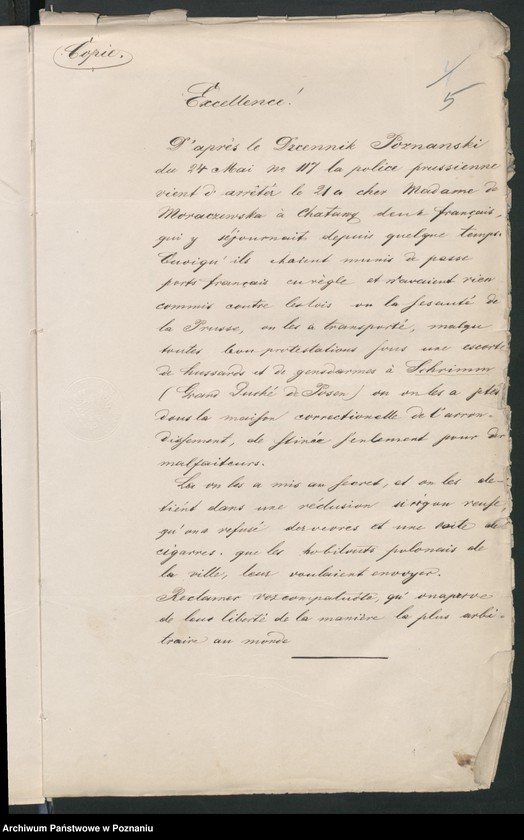 Copie.
5
Excellence!
D'après le Dziennik Poznanski
du 24 Mai No 117 la police prussienne
vient d'arrêter le 21 a cher Madame de
Moraczewska à Chatawy deux français,
qui y séjournait depuis quelque temps.
Quoiqu'ils étaient munis de passe
ports français en règle et n'avaient rien
commis contre les lois ou la de
la Prusse, on les a transporté, malgré
toutes leurs protestations sous une escorte
de hussards et de gendarmes à Schrimm
(Grand Duché de Posen) ou on les a jetés
dans la maison correctionelle de l'arron-
dissement, de stinée seulement pour de
malfaiteurs.
La on les a mis au secret, et on les de-
tient dans une réclusion si rigoureuse,
qu'ons refusé des vivres et une de
cigarres. que les habitants polonais de
la ville, leur voulaient envoyer.
Reclamer vos compatriots, qu'on a prive
de leur liberté de la manière la plus arbi-
traire au monde
Archiwum Państwowe w Poznaniu